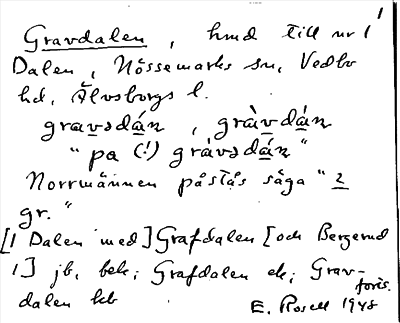 1
Gravdalen, hmd till nr 1
Dalen, Nössemarks sn, Vedbo
hd, Älvsborgs l.
gravədán, gràvdán
"pa (!) grávədán"
Norrmännen påstås säga "2
gr."
[1 Dalen med] Grafdalen [och Bergerud
1] jb, bek; Grafdalen ek; Grav-
dalen kb
E. Rosell 1948